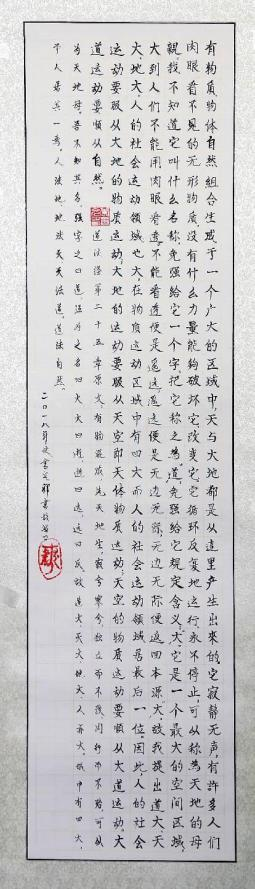 有物质物体自然组合生成于一个广大的区域中,天与大地都是从这里产生出来的,它寂静无声,有许多人们
肉眼看不见的无形物质,没有什么力量能够破坏它改变它,它循环反复地运行,永不停止,可以称为天地的母
親,我不知道它叫什么名称,免强给它一个字,把它称之为道,免强给它规定含义,大,它是一个最大的空间区域,
大到人们不能用肉眼看透,不能看透便是遥远,遥远便是无边无际,无边无际便返回本源,大,故我提出道大,天
大,地大,人的社会运动领域也大,在物质运动区域中有四大,而人的社会运动领域居最后一位,因此,人的社会
运动要服从大地的物质运动,大地的运动要服从天空即天体物质运动,天空的物质运动要顺从大道运动,大
道运动要顺从自然。
道德经第二十五章原文:有物混成,先天地生,寂兮寥兮,独立而不改,周行而不殆,可以
为天地母,吾不知其名,强字之曰道,强为之名曰大,大曰逝,逝曰远,远曰反,故道大,天大,地大,人亦大,域中有四大,
而人居其一焉,人法地,地法天,天法道,道法自然。
二〇一八年